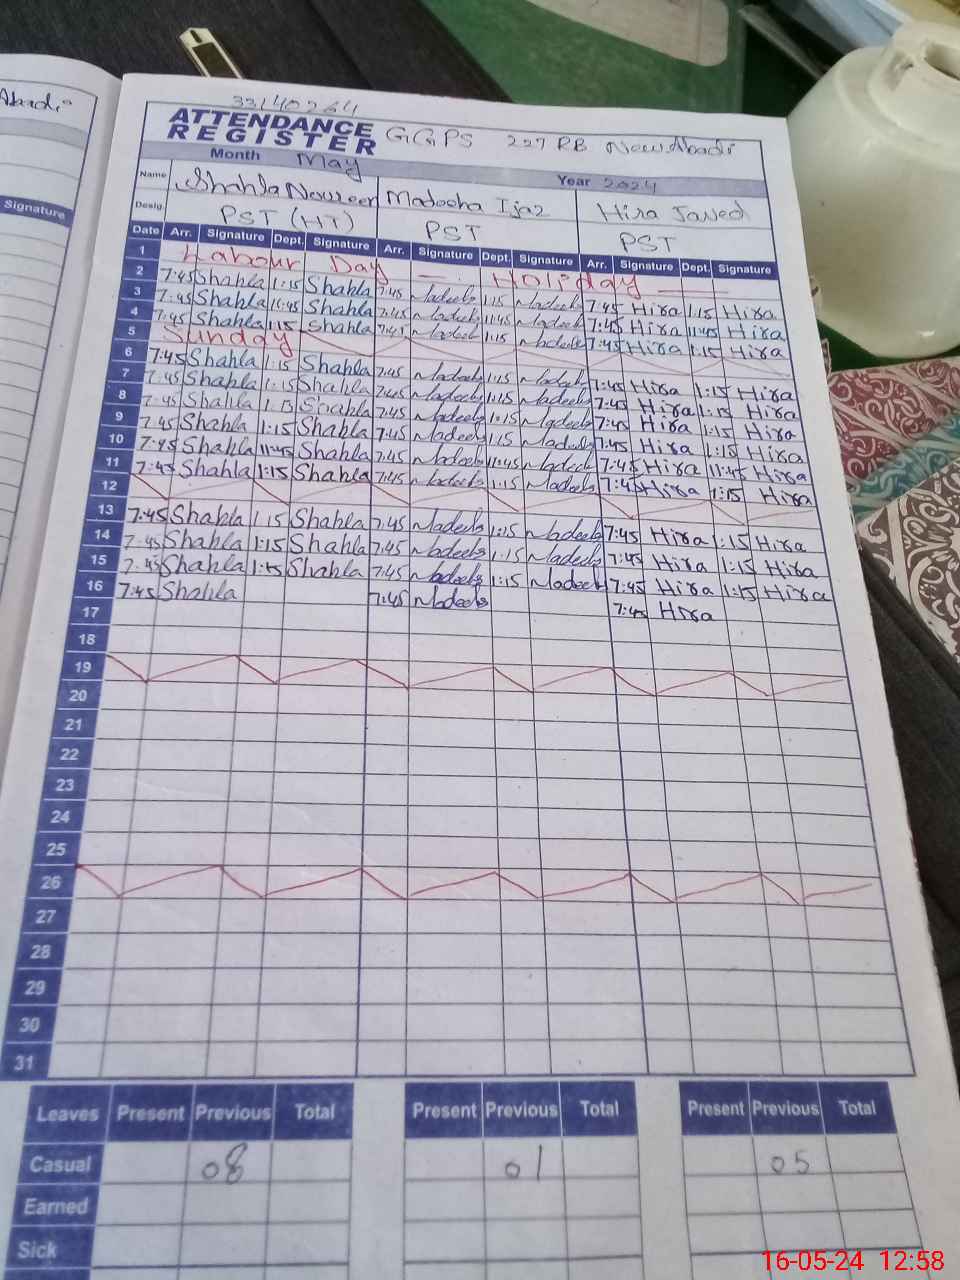 Abadi
Signature
33140264
ATTENDANCE
REGISTER GGPS 227 RB New Abadi
Month May Year 2024
Name Shahla Noureen Madeeha Ijaz Hira Javed
Desig. PST (HT) PST PST
Date Arr. Signature Dept. Signature Arr. Signature Dept. Signature Arr. Signature Dept. Signature
1 Labour Day — Holiday —
2 7:45 Shahla 1:15 Shahla 7:45 Madeeha 1:15 Madeeha 7:45 Hira 1:15 Hira
3 7:45 Shahla 11:45 Shahla 7:45 Madeeha 11:45 Madeeha 7:45 Hira 11:45 Hira
4 7:45 Shahla 1:15 Shahla 7:45 Madeeha 1:15 Madeeha 7:45 Hira 1:15 Hira
5 Sunday
6 7:45 Shahla 1:15 Shahla 7:45 Madeeha 1:15 Madeeha 7:45 Hira 1:15 Hira
7 7:45 Shahla 1:15 Shahla 7:45 Madeeha 1:15 Madeeha 7:45 Hira 1:15 Hira
8 7:45 Shahla 1:15 Shahla 7:45 Madeeha 1:15 Madeeha 7:45 Hira 1:15 Hira
9 7:45 Shahla 1:15 Shahla 7:45 Madeeha 1:15 Madeeha 7:45 Hira 1:15 Hira
10 7:45 Shahla 11:45 Shahla 7:45 Madeeha 11:45 Madeeha 7:45 Hira 11:45 Hira
11 7:45 Shahla 1:15 Shahla 7:45 Madeeha 1:15 Madeeha 7:45 Hira 1:15 Hira
12
13 7:45 Shahla 1:15 Shahla 7:45 Madeeha 1:15 Madeeha 7:45 Hira 1:15 Hira
14 7:45 Shahla 1:15 Shahla 7:45 Madeeha 1:15 Madeeha 7:45 Hira 1:15 Hira
15 7:45 Shahla 1:15 Shahla 7:45 Madeeha 1:15 Madeeha 7:45 Hira 1:15 Hira
16 7:45 Shahla 7:45 Madeeha 7:45 Hira
17
18
19
20
21
22
23
24
25
26
27
28
29
30
31
Leaves Present Previous Total Present Previous Total Present Previous Total
Casual 08 01 05
Earned
Sick
16-05-24 12:58